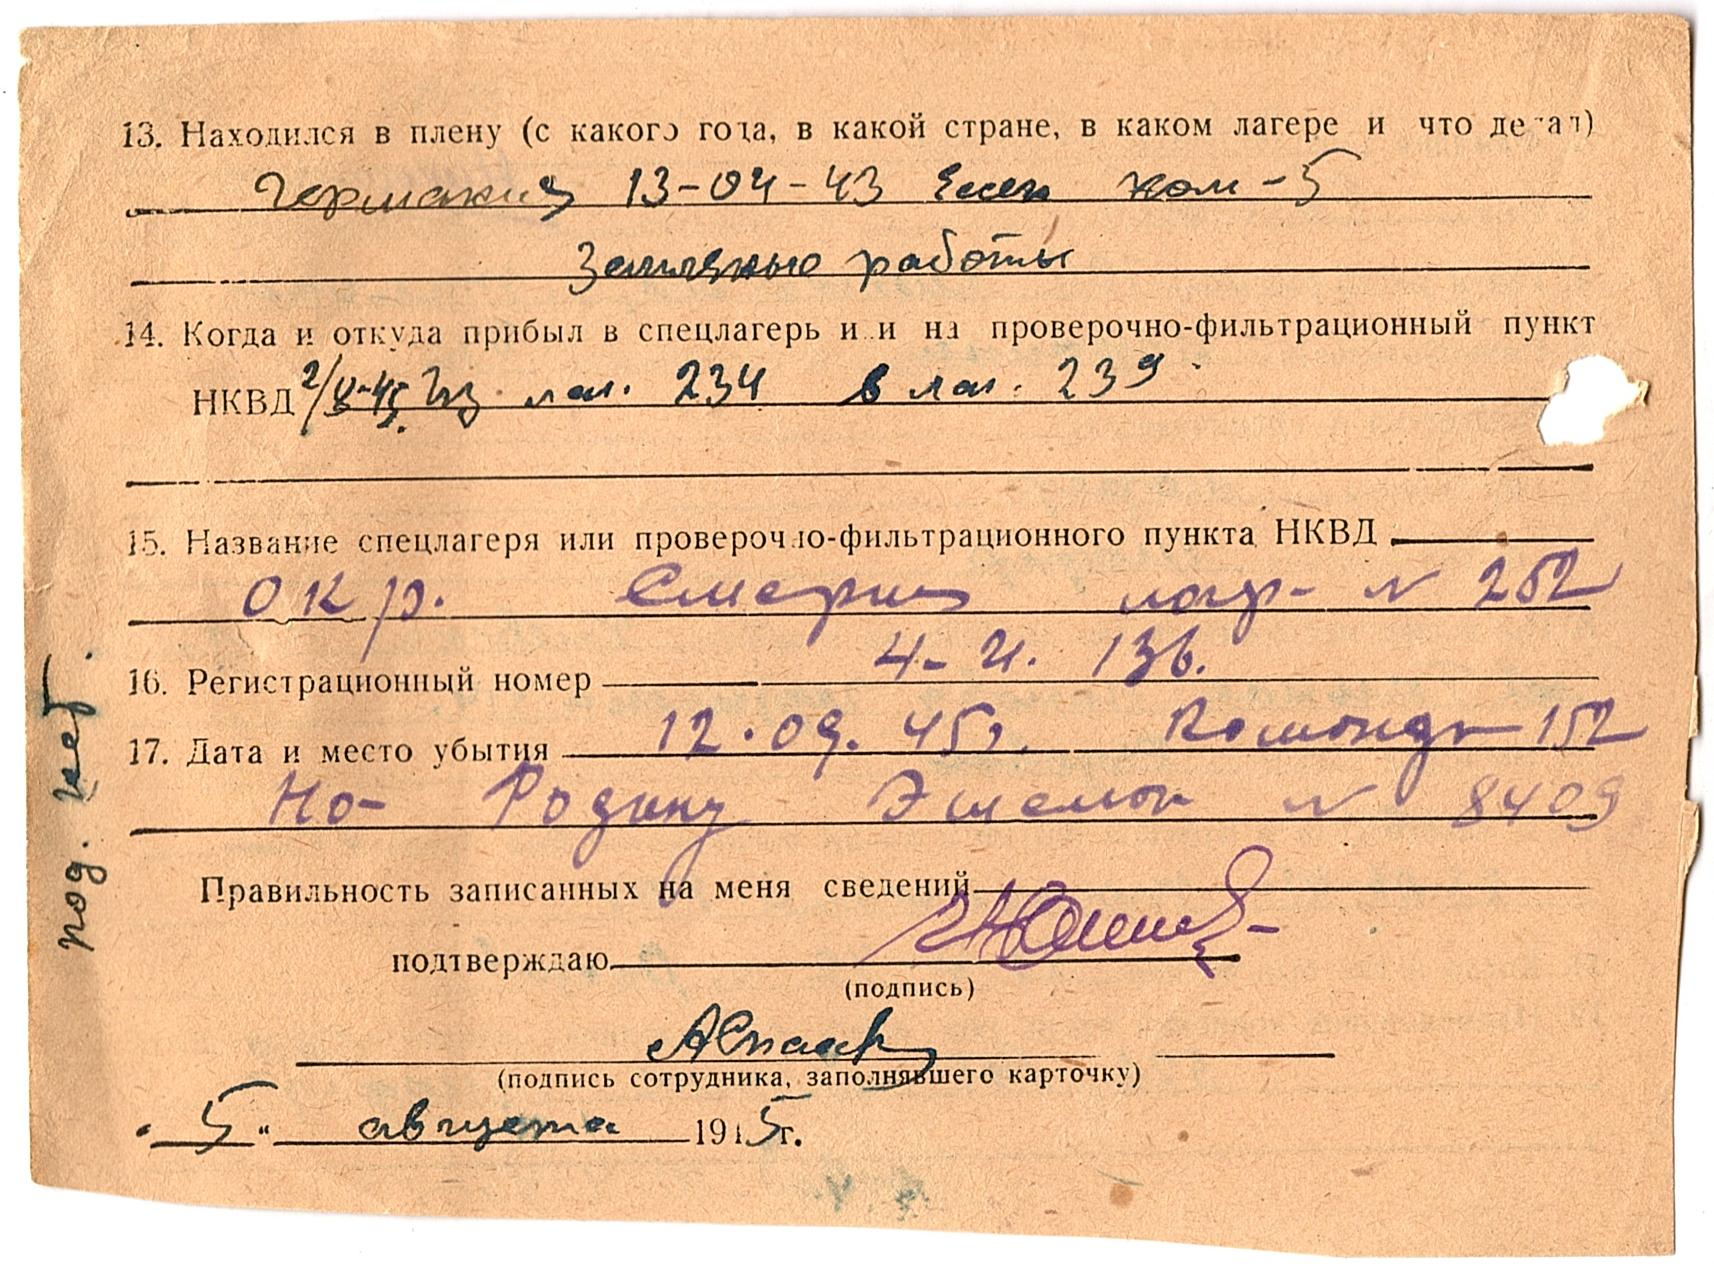 13. Находился в плену (с какого года, в какой стране, в каком лагере и что делал)
Германия 13-04-43 Есен ком-5
Земляные работы
14. Когда и откуда прибыл в спецлагерь или на проверочно-фильтрационный пункт
НКВД 2/8-45. Из лаг. 234 в лаг. 239
15. Название спецлагеря или проверочно-фильтрационного пункта НКВД
окр. Смерш лагр- N 252
16. Регистрационный номер 4-
17. Дата и место убытия 12.09.45г. Команда 152
На Родину Эшелон N 8409
Правильность записанных на меня сведений
подтверждаю
(подпись)
(подпись сотрудника, заполнявшего карточку)
"5" августа 1945г.
под. нет.